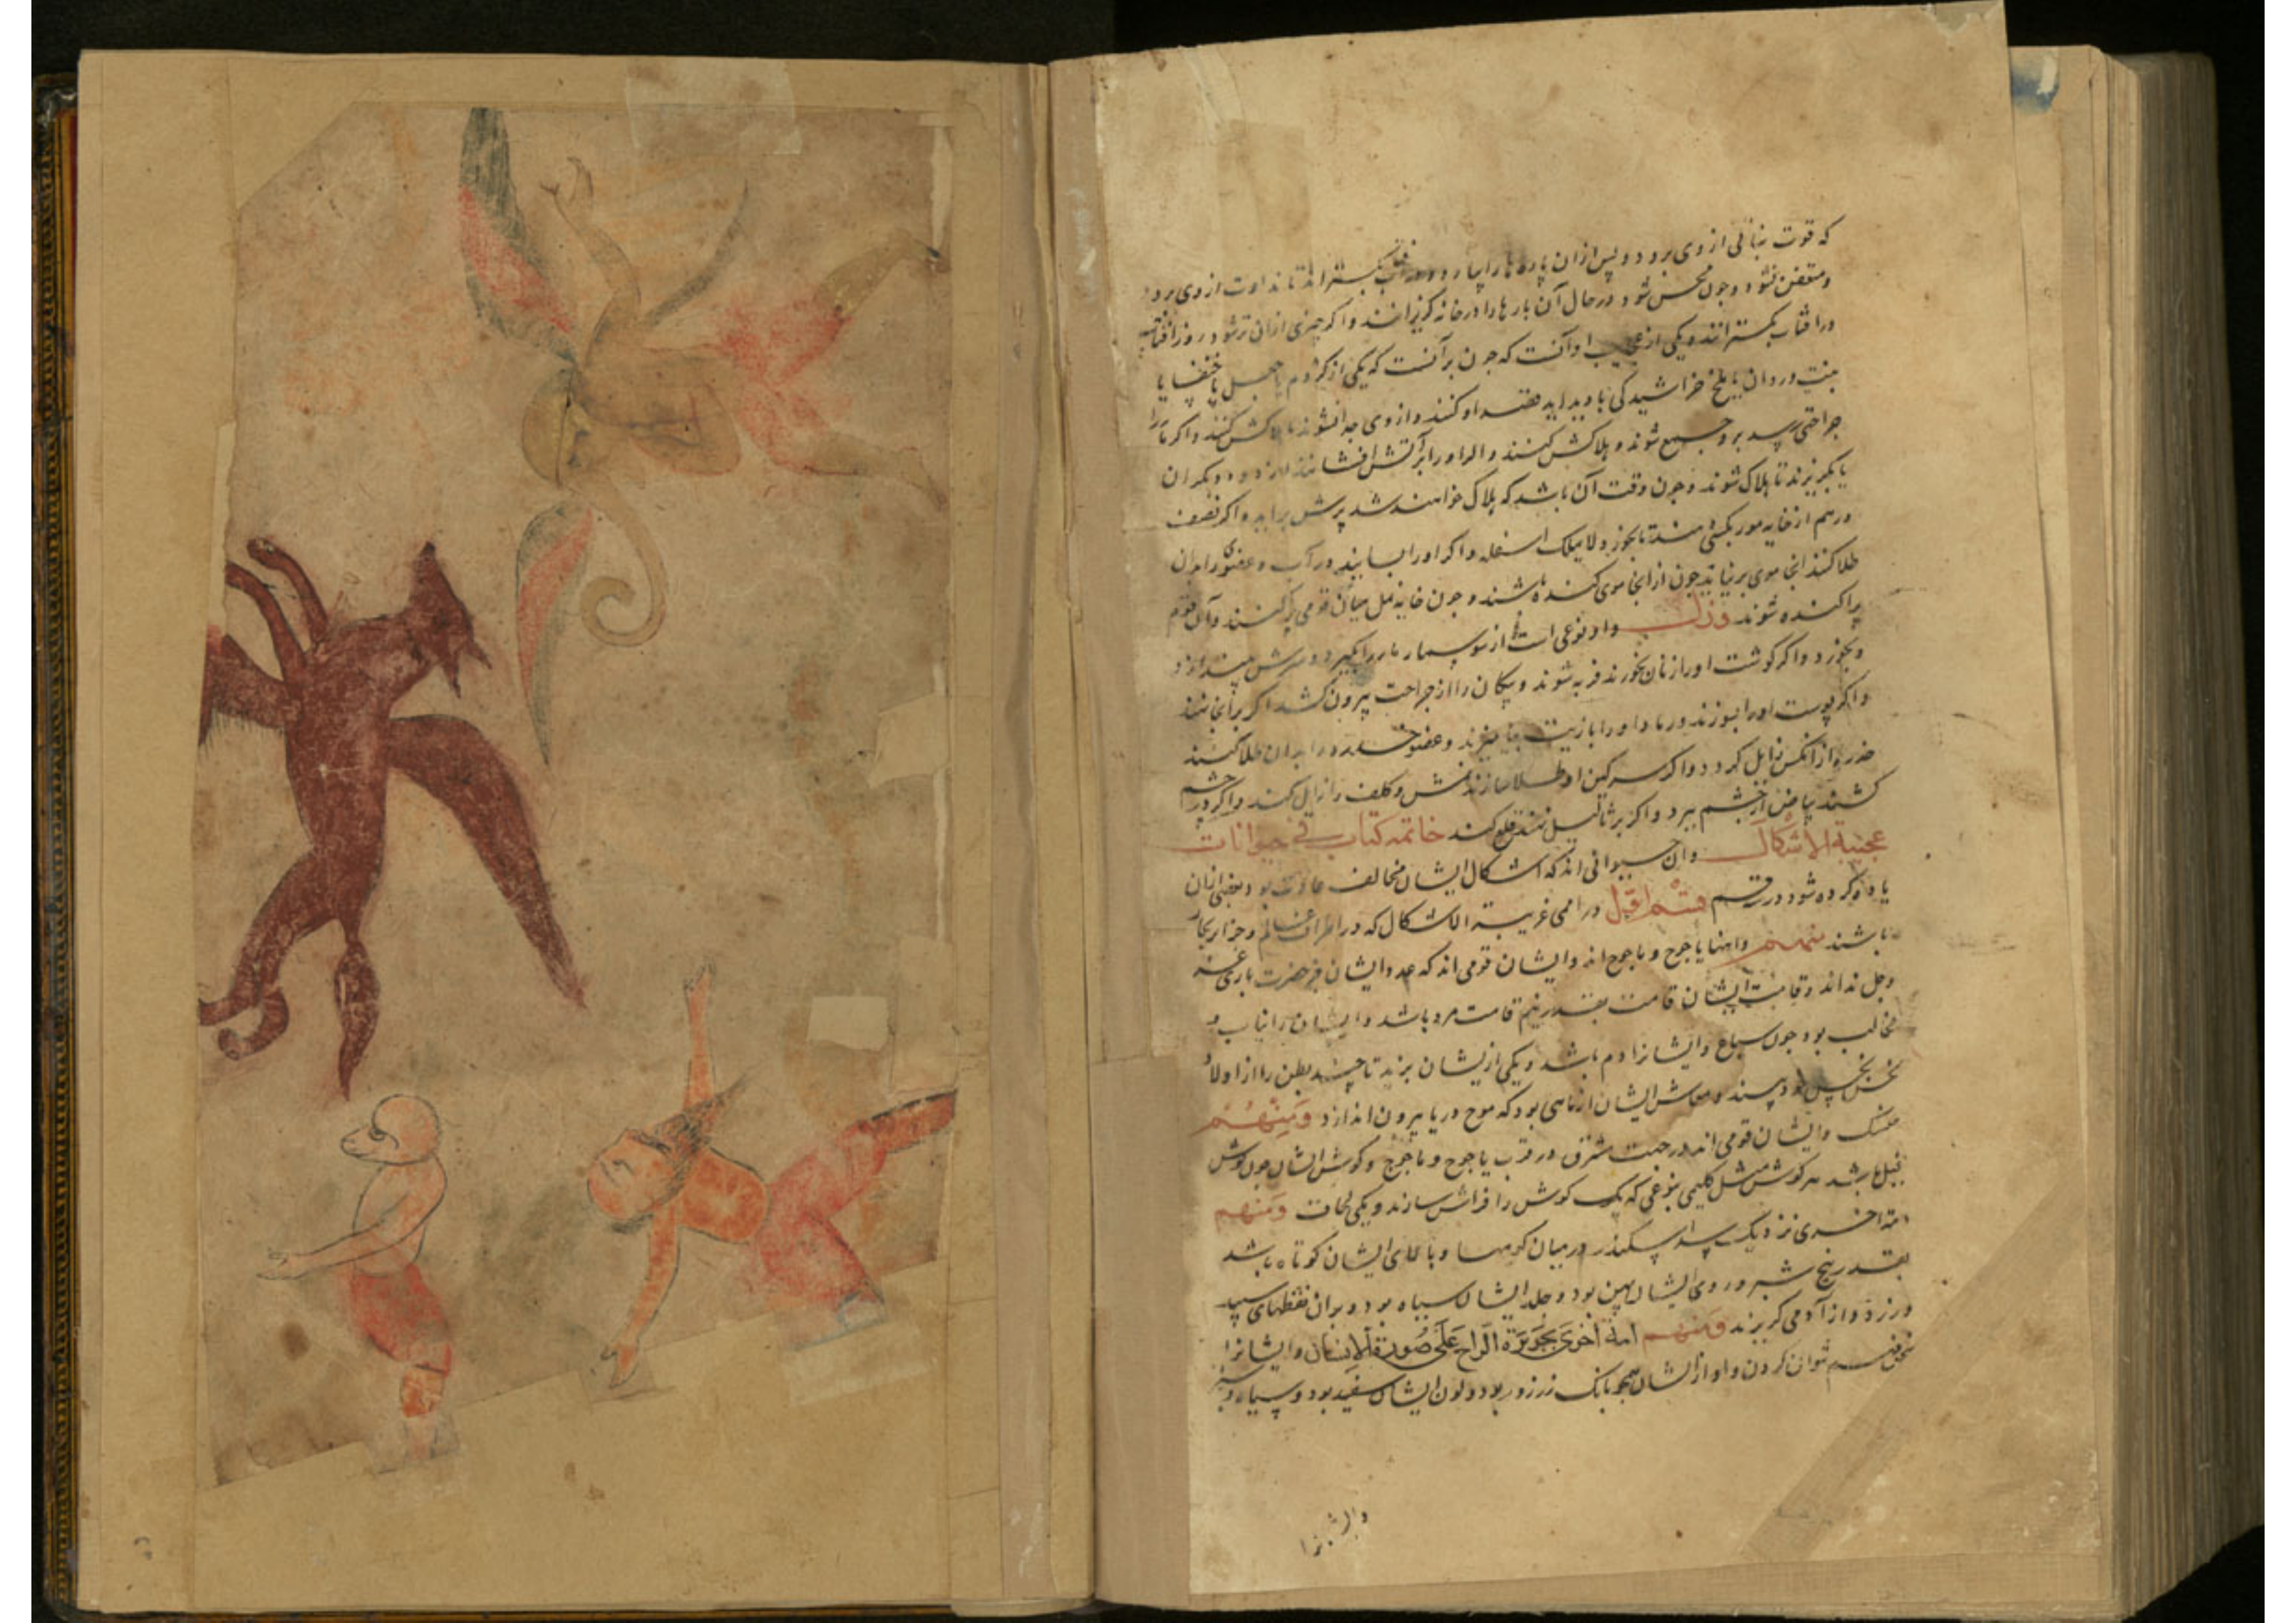 که قوت نباتی از وی برود و پس از آن پاره ها را بیارد و در آفتاب بکستراند تا نداوت از وی برود
و متعفن نشود و چون محسن شود در حال آن بارها را در خانه کریزانند و اکر چیزی از آن تر شود روز آفتاب
در آفتاب بکسترانند و یکی از عجایب او آنست که چون بر آنست که یکی از کژدم یا جعل یا خنفسا یا
بنت وردان یا ملخ خراشیدگی یا بدید آید قصد او کنند و از وی جدا نشوند تا هلاکش کنند و اکر مار را
جراحتی رسد برو جمع شوند و هلاکش کنند و او را بر آتش افشانند دود دیکران
یا بکریزند تا هلاک شوند و چون وقت آن باشد که هلاک خواهند شد پرش براید و اکر نصف
درهم از خایه مور بکسی دهند تا بخورد لا یملک اسفله و اکر او را بسایند در آب و عضوی را بدان
طلا کنند انجا موی برنیاید چون از انجا موی کنده باشند و چون خایه نمل میان قومی پراکنند و آن قوم
پراکنده شوند ورل و او نوعی است از سوسمار مار را بکیرد و سرش بیندازد
و بخورد و اکر کوشت او را زنان بخورند فربه شوند و پیکان را از جراحت بیرون کشد اکر بر انجا نهند
و اکر پوست او را بسوزند و رماد او را با زیت بیامیزند و عضو خدر را بدان طلا کنند
خدر از آنکس زایل کردد و اکر سرکین او طلا سازند نمش و کلف را زایل کند و اکر در چشم
کشند بیاض از چشم ببرد و اکر بر ثآلیل نهند قلع کند خاتمه کتاب فی حیوانات
عجیبة الاشکال و آن حیوانی اند که اشکال ایشان مخالف عادت بود و بعضی از آن
یاد کرده شود در قسم قسم اول در اممی غریبة الاشکال که در اطراف عالم و جزایر بحار
باشند منهم یاجوج و ماجوج اند و ایشان قومی اند که عدد ایشان جز حضرت باری عز
و جل نداند و قامت ایشان قامت بقدر نیم قامت مرد باشد و ایشان را انیاب و
مخالب بود چون سباع و ایشانرا دم باشد و یکی از ایشان بزید تا چند بطن را از اولاد
معاش ایشان از ماهی بود که موج دریا بیرون اندازد ومنهم
منسک و ایشان قومی اند در جهت شرق در قرب یاجوج و ماجوج و کوش ایشان چون کوش
فیل باشد هر کوش مثل کلیمی بنوعی که یک کوش را فراش سازند و یکی لحاف ومنهم
امة اخری نزدیک سد اسکندر در میان کوهها و بالای ایشان کوتاه باشد
بقدر پنج شبر و روی ایشان پهن بود و جلد ایشان سیاه بود و بر آن نقطهای سپید
و زرد و از آدمی کریزند ومنهم امة اخری بجزیرة الراح علی صورة الانسان و ایشانرا
سخن فهم نتوان کردن و آواز ایشان همچو بانک زرزور بود و لون ایشان سفید بود و سیاه و سبز
و ایشانرا